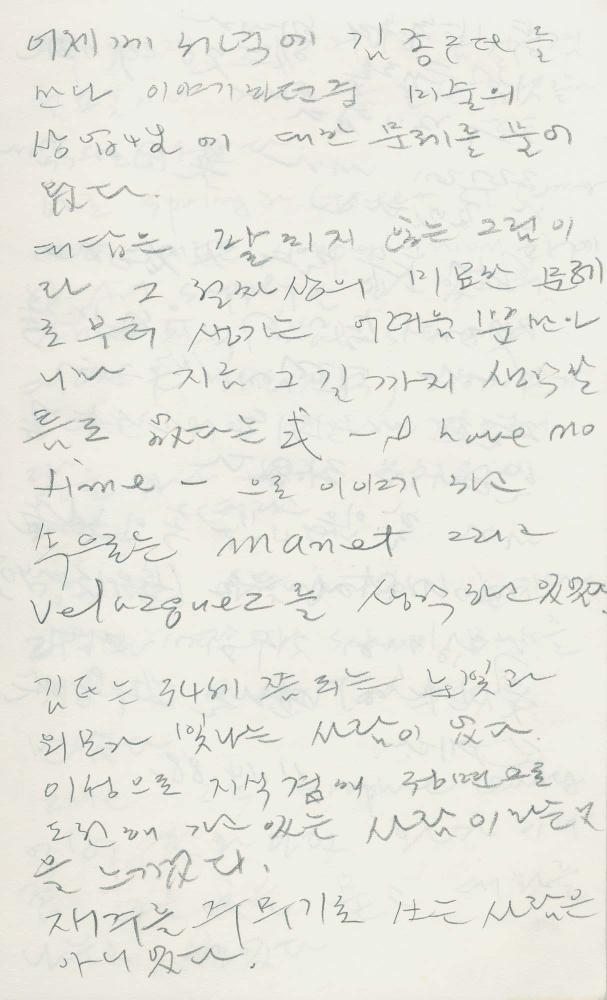 어제께 저녁에 김종근氏를
만나 이야기하던중 미술의
상업성에 대한 문제를 물어
왔다.
대답은 팔리지 않는 그림이
라 그 절차상의 미묘한 문제
로부터 생기는 어려움 뿐만아
니라 지금 그길까지 생각할
틈도 없다는 式 - I have no
time - 으로 이야기하고
속으로는 manet 그리고
velazquez를 생각하고 있었다.
김氏는 34세쯤 되는 눈빛과
외모가 빛나는 사람이 었다.
이성으로 지식 겸해 주면으로
도전해 가고 있는 사람이라는것
을 느끼겠다.
재주를 주무기로 쓰는 사람은
아니 었다.